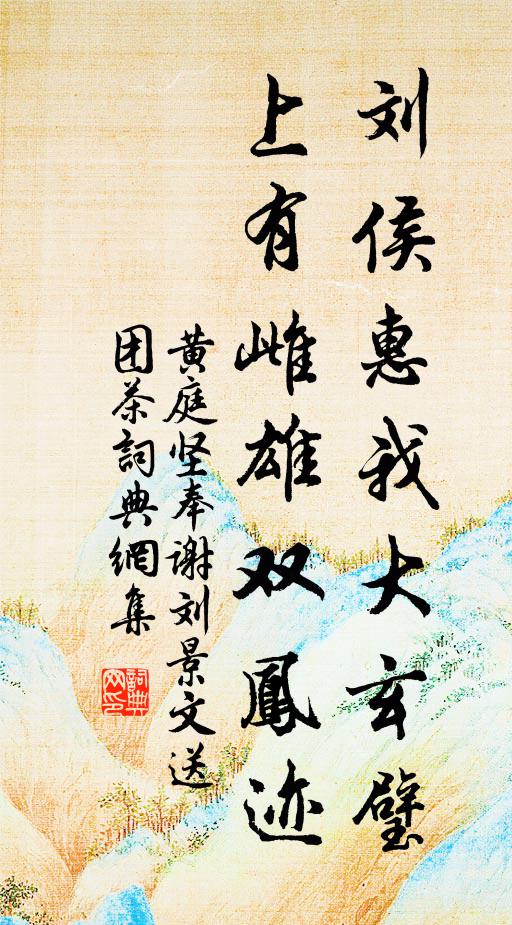 刘侯惠我大玄璧
上有雌雄双鳳迹
黄庭坚奉谢刘景文送
团茶詞典網集
詞典網印